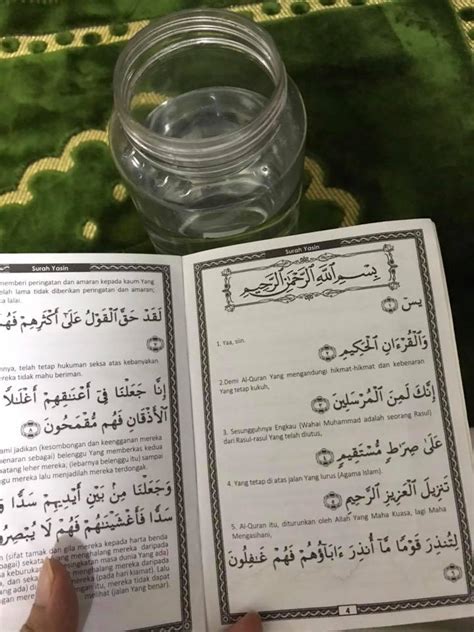 Surah Yasin
بِسْمِ اللَّهِ الرَّحْمَٰنِ الرَّحِيمِ
يسٓ ١
1. Yaa, siin.
وَالْقُرْءَانِ الْحَكِيمِ ٢
2.Demi Al-Quran Yang mengandungi hikmat-hikmat dan kebenaran
Yang tetap kukuh,
إِنَّكَ لَمِنَ الْمُرْسَلِينَ ٣
3. Sesungguhnya Engkau (Wahai Muhammad adalah seorang Rasul)
dari Rasul-rasul Yang telah diutus,
عَلَىٰ صِرَٰطٍ مُّسْتَقِيمٍ ٤
4. Yang tetap di atas jalan Yang lurus (Agama Islam).
تَنزِيلَ الْعَزِيزِ الرَّحِيمِ ٥
5. Al-Quran itu, diturunkan oleh Allah Yang Maha Kuasa, lagi Maha
Mengasihani,
لِتُنذِرَ قَوْمًا مَّا أُنذِرَ ءَابَاؤُهُمْ فَهُمْ غَٰفِلُونَ
4
Surah Yasin
memberi peringatan dan amaran kepada kaum Yang
telah lama tidak diberikan peringatan dan amaran;
lalai.
لَقَدْ حَقَّ الْقَوْلُ عَلَىٰ أَكْثَرِهِمْ فَهُمْ
telah tetap hukuman seksa atas kebanyakan
mereka tidak mahu beriman.
إِنَّا جَعَلْنَا فِىٓ أَعْنَٰقِهِمْ أَغْلَٰلًا
الْأَذْقَانِ فَهُم مُّقْمَحُونَ ٨
jadikan (kesombongan dan keengganan mereka
benaran sebagai) belenggu Yang memberkas kedua
batang leher mereka, (lebarnya belenggu itu) sampai
lalu menjadilah mereka terdongak.
وَجَعَلْنَا مِنۢ بَيْنِ أَيْدِيهِمْ سَدًّا وَ
سَدًّا فَأَغْشَيْنَٰهُمْ فَهُمْ لَا يُبْصِرُو
(sifat tamak dan gila mereka kepada harta benda
sebagai) sekatan Yang menghalang mereka daripada